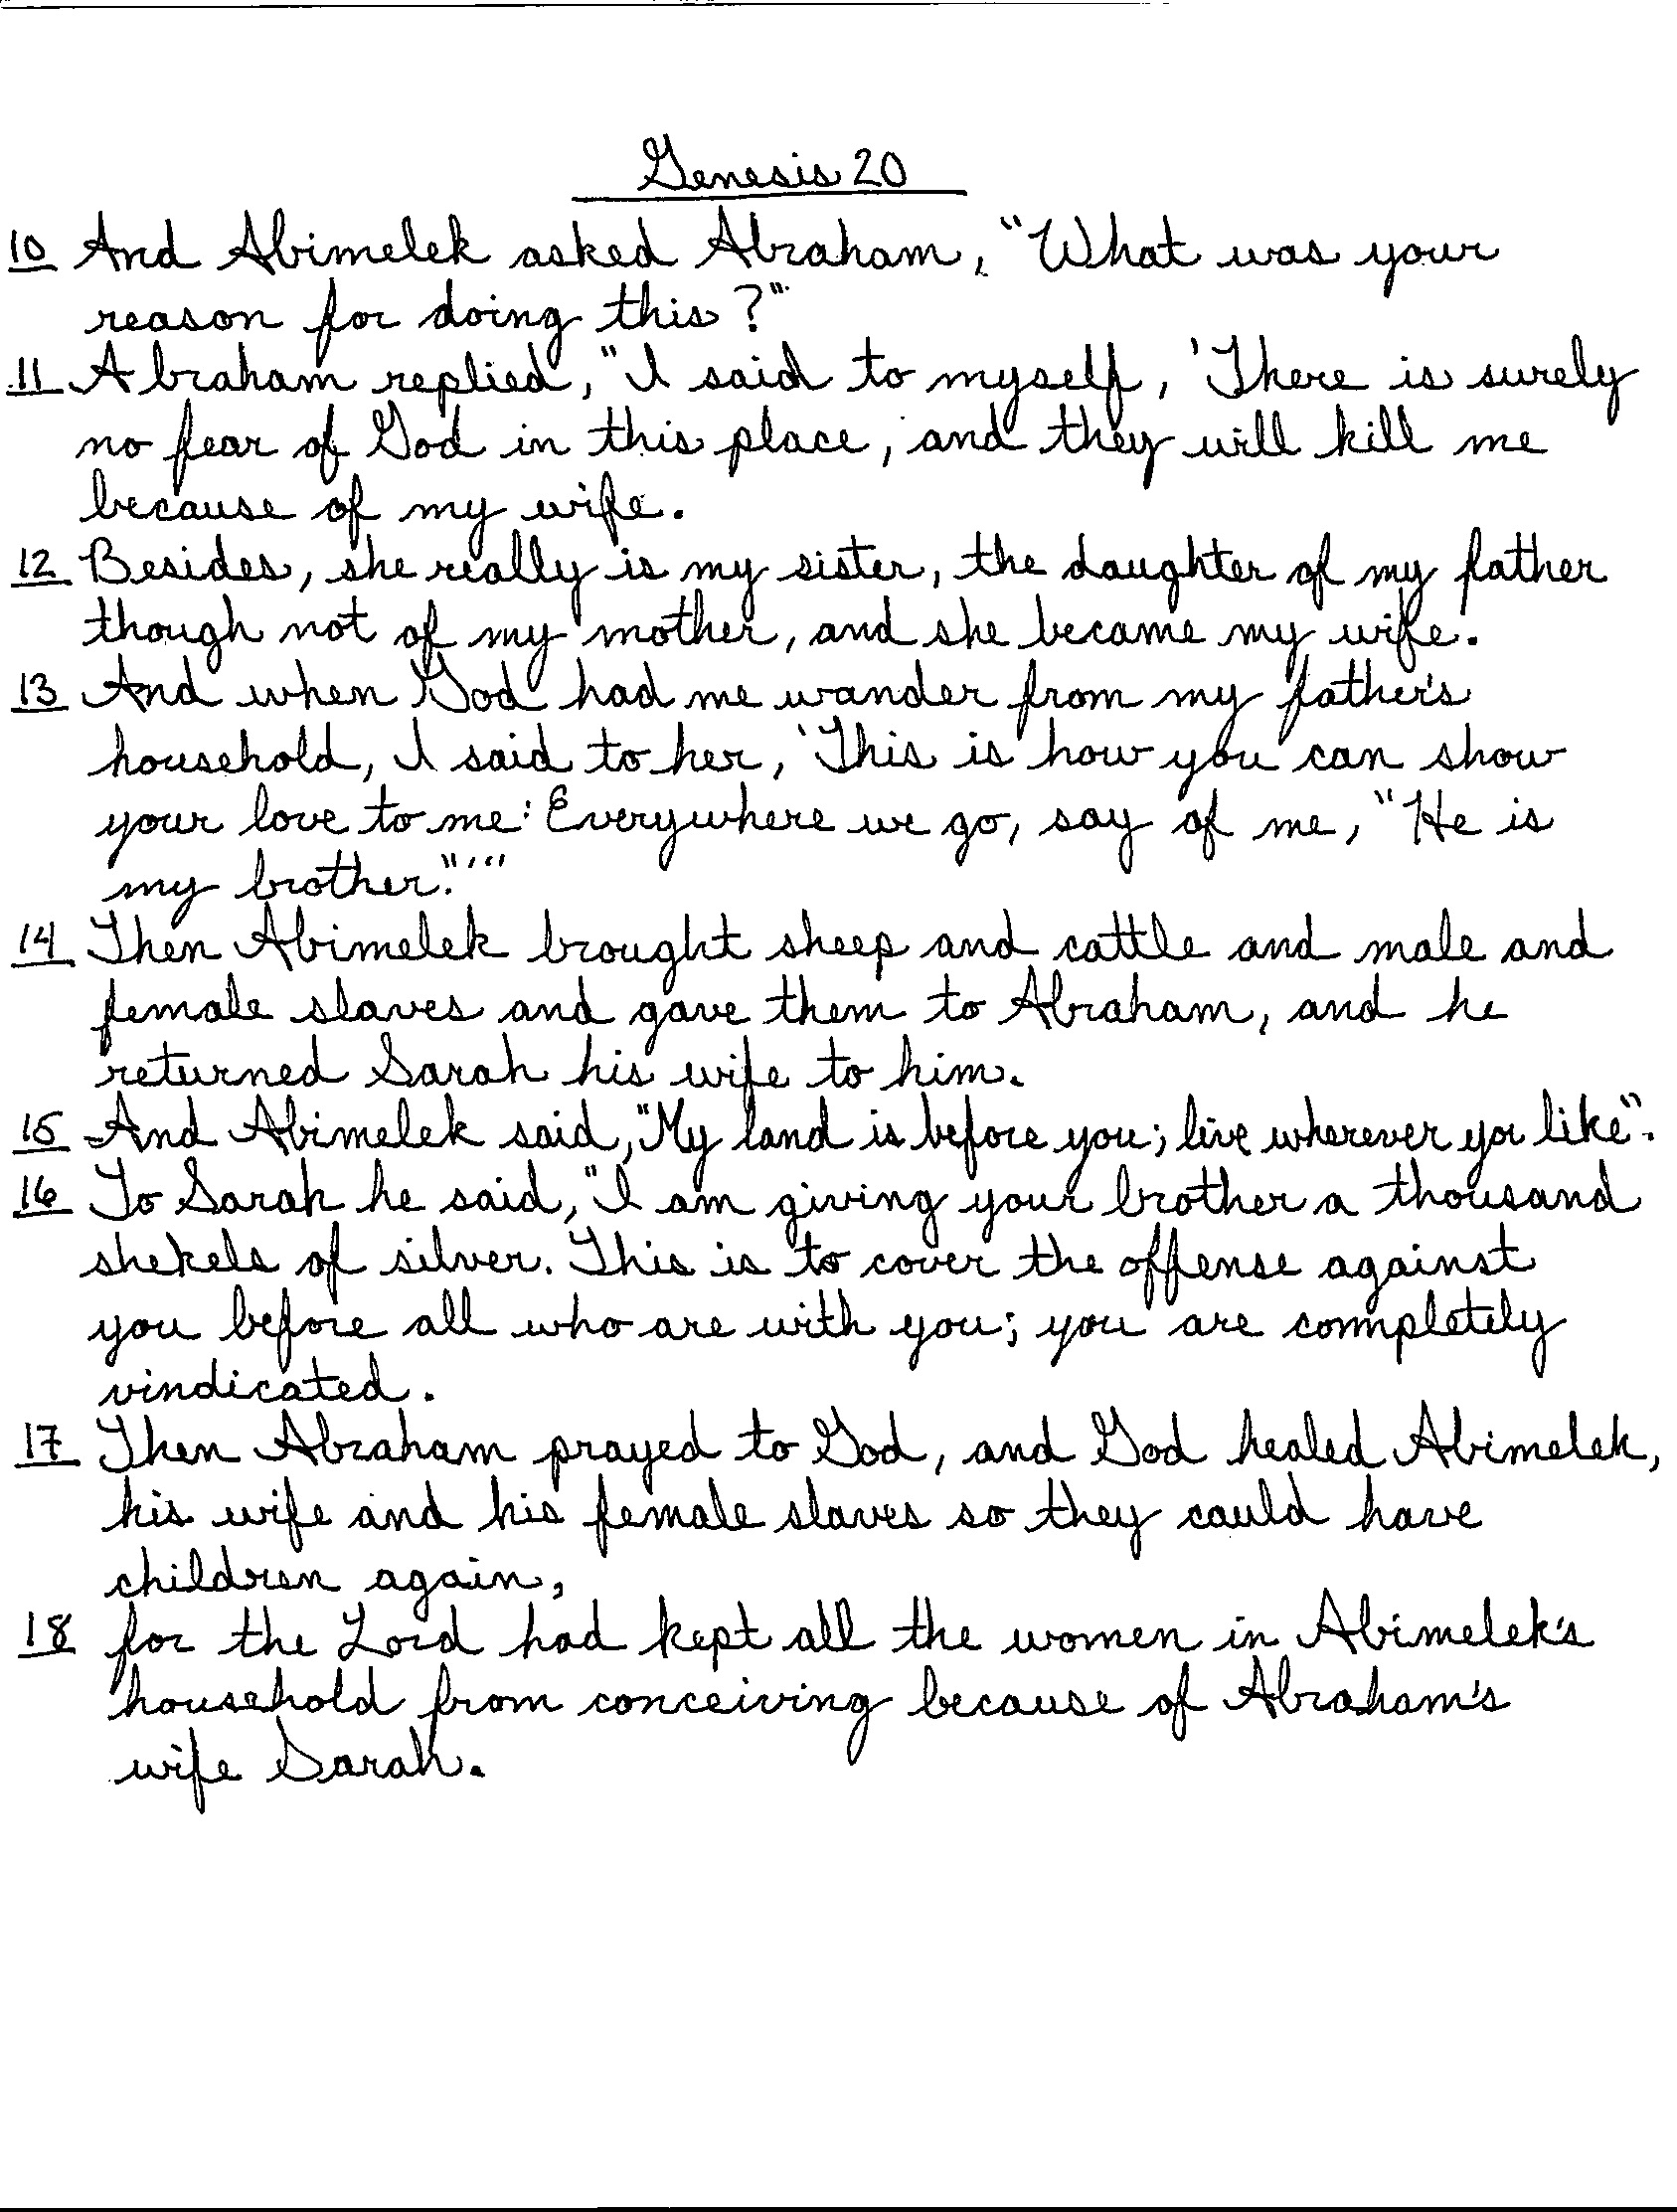 Genesis 20
10 And Abimelek asked Abraham, "What was your
reason for doing this?"
11 Abraham replied, "I said to myself, 'There is surely
no fear of God in this place, and they will kill me
because of my wife.
12 Besides, she really is my sister, the daughter of my father
though not of my mother, and she became my wife.
13 And when God had me wander from my father's
household, I said to her, 'This is how you can show
your love to me: Everywhere we go, say of me, "He is
my brother."'"
14 Then Abimelek brought sheep and cattle and male and
female slaves and gave them to Abraham, and he
returned Sarah his wife to him.
15 And Abimelek said, "My land is before you; live wherever you like".
16 To Sarah he said, "I am giving your brother a thousand
shekels of silver. This is to cover the offense against
you before all who are with you; you are conmpletely
vindicated.
17 Then Abraham prayed to God, and God healed Abimelek,
his wife and his female slaves so they could have
children again,
18 for the Lord had kept all the women in Abimelek's
household from conceiving because of Abraham's
wife Sarah.